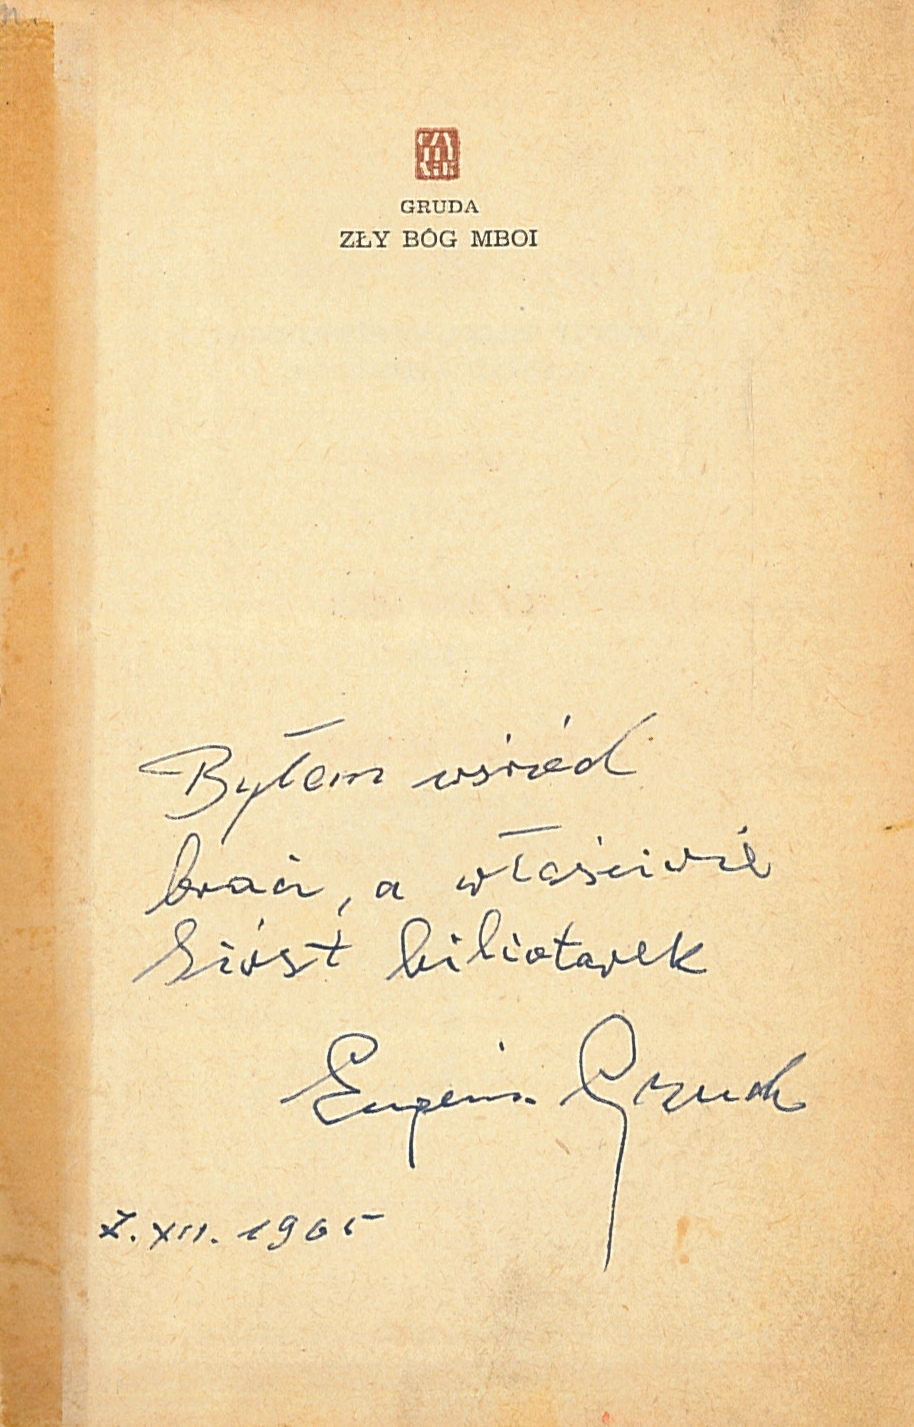 GRUDA
ZŁY BÓG MBOI
Byłem wśród
braci, a właściwie
Sióst biliotarek
Eugenia Gruda
7.XII.1965